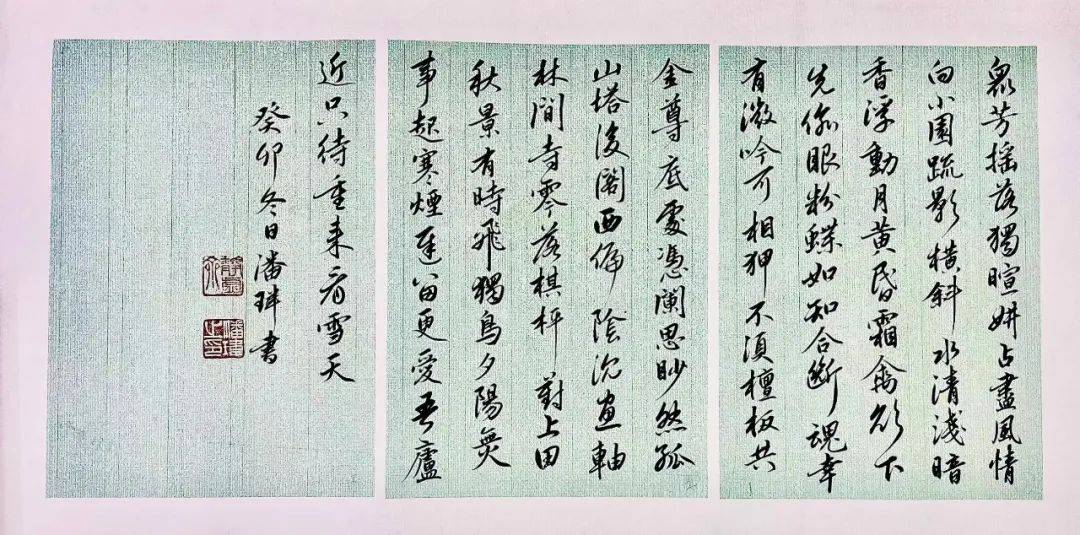 衆芳搖落獨暄妍占盡風情
向小園疏影橫斜水清淺暗
香浮動月黃昏霜禽欲下
先偷眼粉蝶如知合斷魂幸
有微吟可相狎不須檀板共
金尊底處憑闌思眇然孤
山塔後閣西偏陰沉畫軸
林間寺零落棋枰葑上田
秋景有時飛獨鳥夕陽無
事起寒煙遲留更愛吾廬
近只待重來看雪天
癸卯冬日潘書